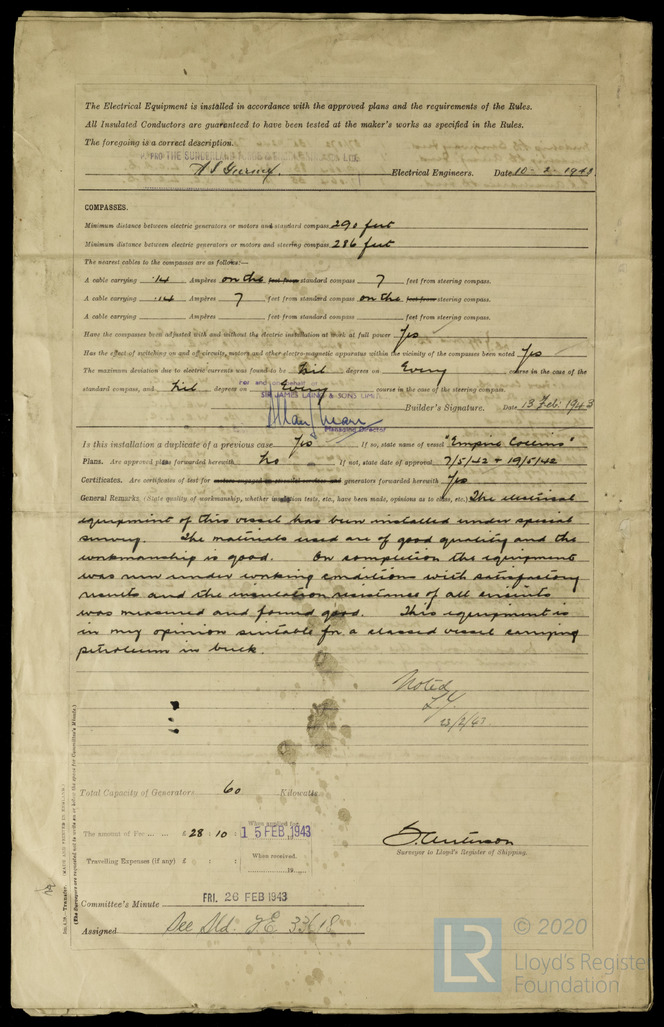 The Electrical Equipment is installed in accordance with the approved plans and the requirements of the Rules.
All Insulated Conductors are guaranteed to have been tested at the maker's works as specified in the Rules.
The foregoing is a correct description.
PRO THE SUNDERLAND
Electrical Engineers. Date 10-2-1943.
COMPASSES.
Minimum distance between electric generators or motors and standard compass 290 feet
Minimum distance between electric generators or motors and steering compass 286 feet
The nearest cables to the compasses are as follows:—
A cable carrying .14 Ampères on the feet from standard compass 7 feet from steering compass.
A cable carrying .14 Ampères 7 feet from standard compass on the feet from steering compass.
A cable carrying Ampères feet from standard compass feet from steering compass.
Have the compasses been adjusted with and without the electric installation at work at full power Yes
Has the effect of switching on and off circuits, motors and other electro-magnetic apparatus within the vicinity of the compasses been noted Yes
The maximum deviation due to electric currents was found to be Nil degrees on Every course in the case of the
standard compass, and Nil degrees on Every course in the case of the steering compass.
For and on behalf of
SIR JAMES LAING & SONS LIMITED
Managing Director
Builder's Signature. Date 13 Feb. 1943
Is this installation a duplicate of a previous case Yes If so, state name of vessel "Empire Collins"
Plans. Are approved plans forwarded herewith No If not, state date of approval 7/5/42 + 19/5/42
Certificates. Are certificates of test for generators forwarded herewith Yes
General Remarks (State quality of workmanship, whether insulation tests, etc., have been made, opinions as to class, etc.) The electrical
equipment of this vessel has been installed under special
survey. The materials used are of good quality and the
workmanship is good. On completion the equipment
was run under working conditions with satisfactory
results and the insulation resistance of all circuits
was measured and found good. This equipment is
in my opinion suitable for a classed vessel carrying
petroleum in bulk.
Noted
23/2/43.
Total Capacity of Generators 60 Kilowatts.
The amount of Fee ... £ 28 : 10 : When applied for, 15 FEB 1943
Travelling Expenses (if any) £ : : When received, 19
Surveyor to Lloyd's Register of Shipping.
Committee's Minute FRI. 26 FEB 1943
Assigned See Sld. F.E. 33618
(The Surveyors are requested not to write on or below the space for Committee's Minute.)
© 2020
LR
Lloyd's Register
Foundation